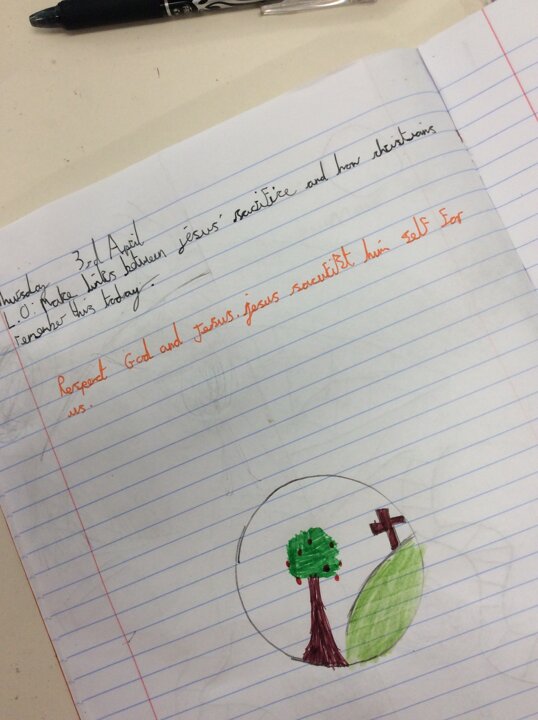 Thursday 3rd April
L.O: Make links between jesus' sacrifice and how christians
remember this today.
Respect God and Jesus. jesus sacrifist him self for
us.